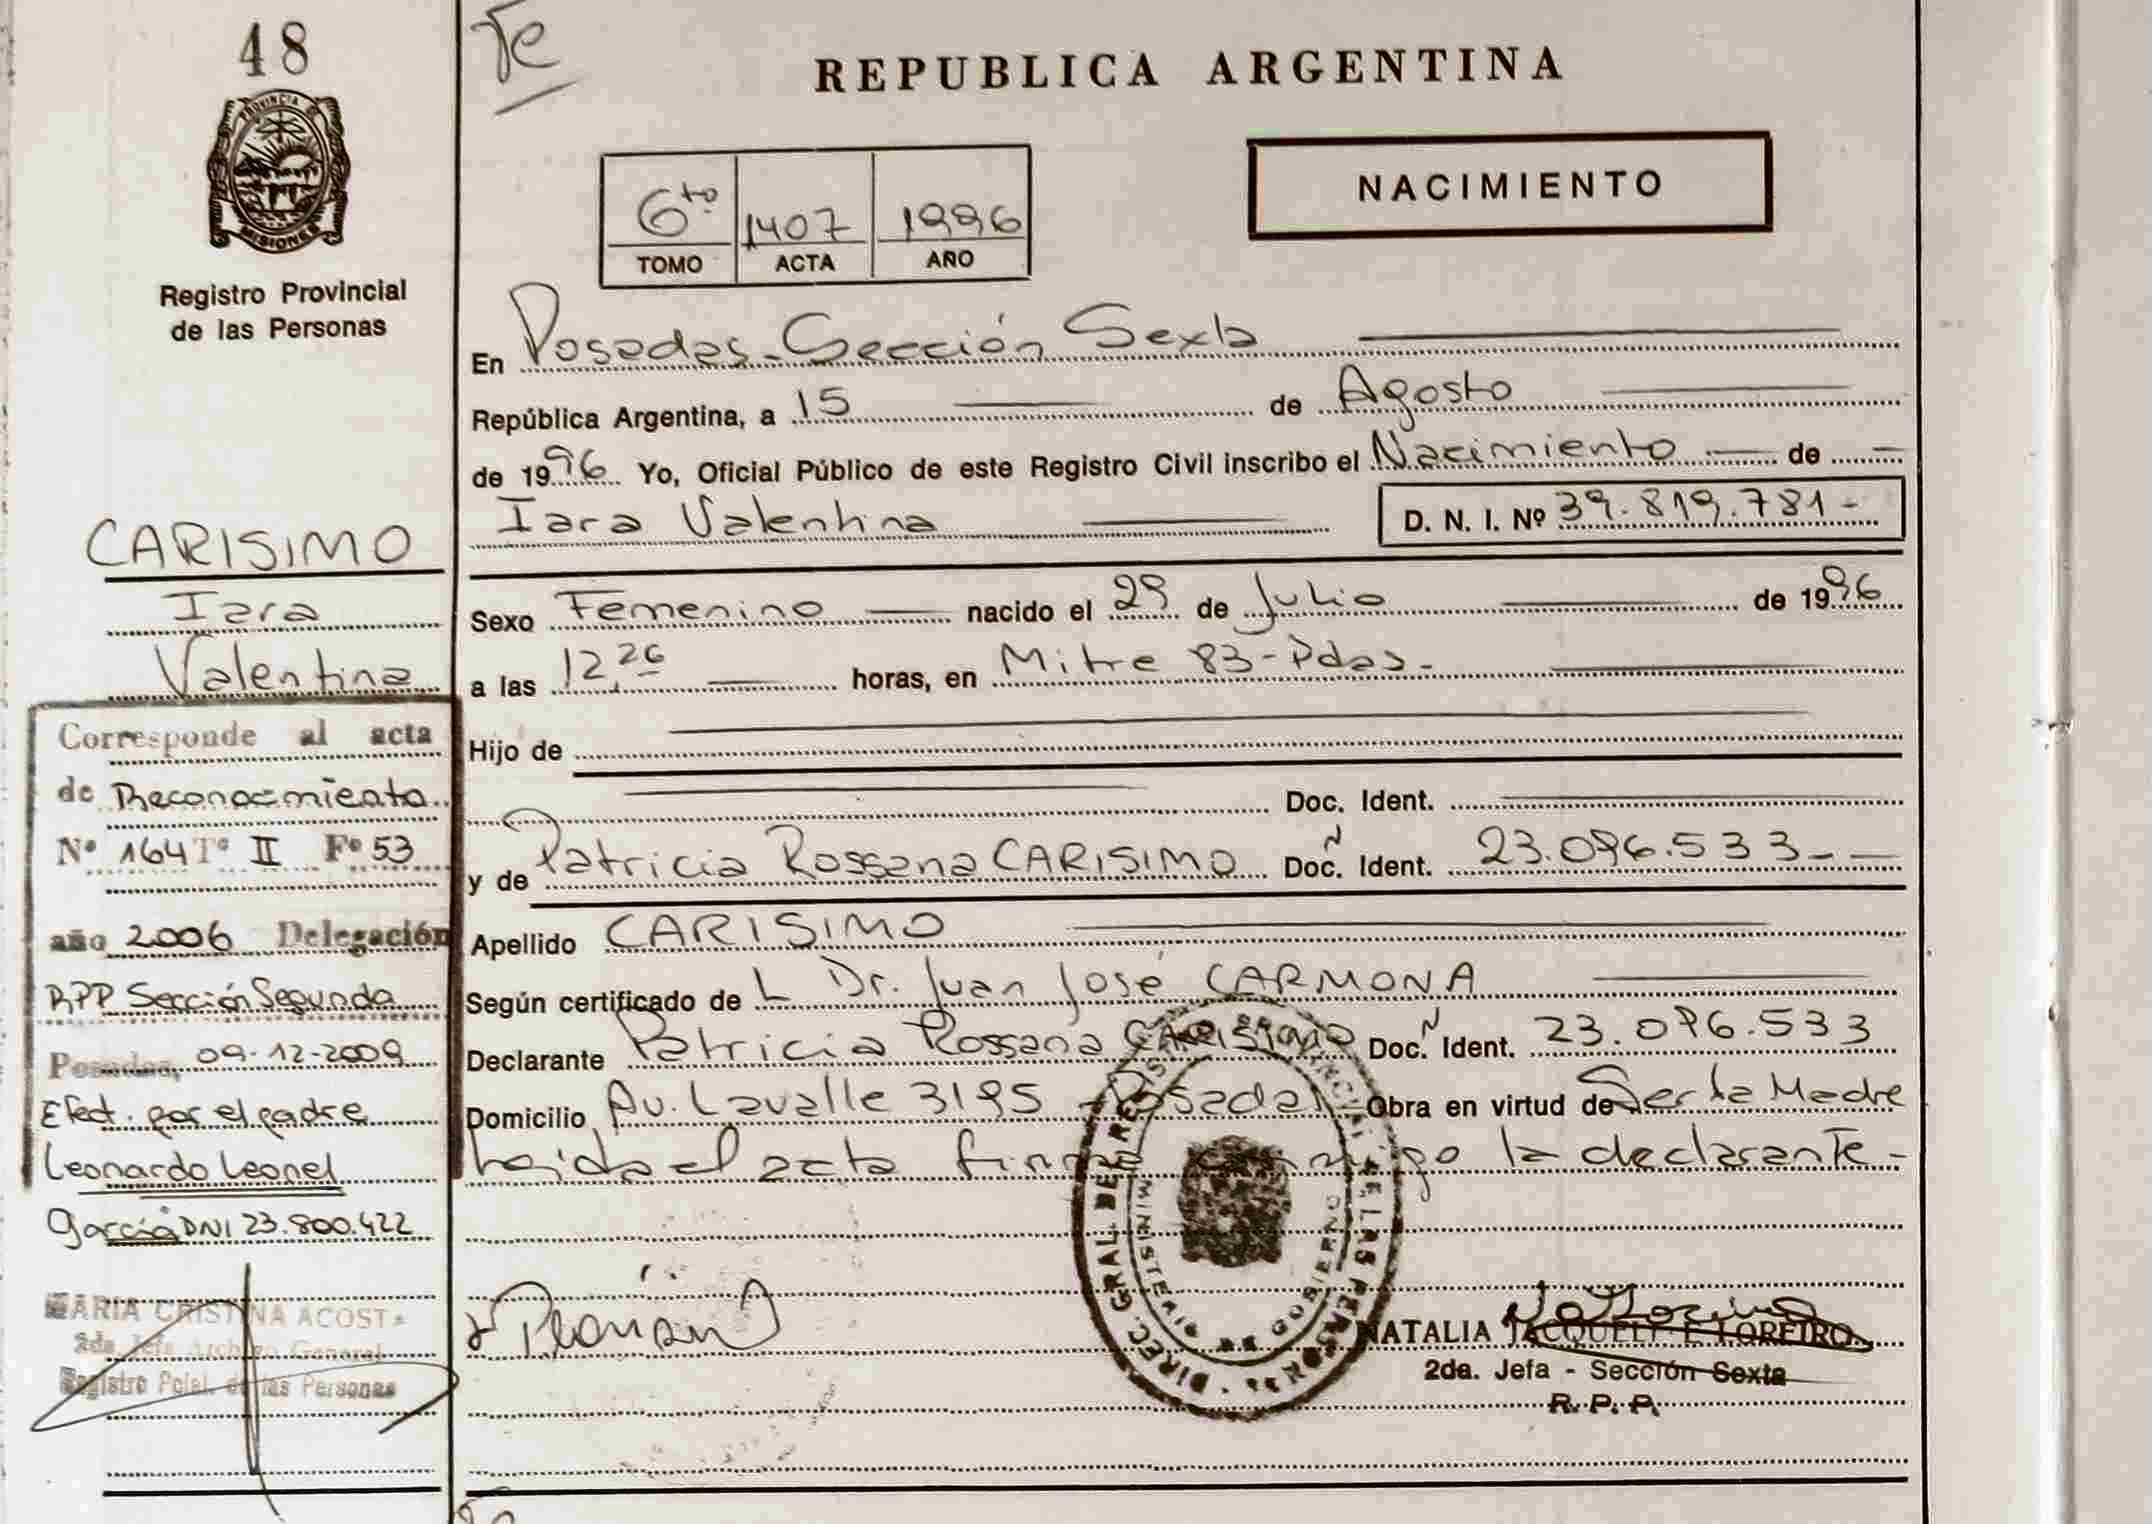 48
PROVINCIA DE
MISIONES
Registro Provincial
de las Personas
CARISIMO
Iara
Valentina
Corresponde al acta
de Reconocimiento
Nº 164 Tº II Fº 53
año 2006 Delegación
RPP Sección Segunda
Posadas, 09-12-2009
Efect. por el padre
Leonardo Leonel
García DNI 23.800.422
MARIA CRISTINA ACOSTA
2da. Jefa Archivo General
Registro Pcial. de las Personas
REPUBLICA ARGENTINA
NACIMIENTO
6to 1407 1996
TOMO ACTA AÑO
En Posadas - Sección Sexta
República Argentina, a 15 de Agosto
de 1996 Yo, Oficial Público de este Registro Civil inscribo el Nacimiento de
Iara Valentina D. N. I. Nº 39.819.781-
Sexo Femenino nacido el 29 de Julio de 1996
a las 12,26 horas, en Mitre 83 - Pdas-
Hijo de
Doc. Ident.
y de Patricia Rossana CARISIMO Doc. N Ident. 23.096.533-
Apellido CARISIMO
Según certificado de L Dr. Juan José CARMONA
Declarante Patricia Rossana CARISIMO Doc. N Ident. 23.096.533
Domicilio Av. Lavalle 3195 - Posadas Obra en virtud de Ser la Madre
Leida el acta firma conmigo la declarante -
DIREC. GRAL DEL REGISTRO PROVINCIAL DE LAS PERSONAS
MINISTERIO DE GOBIERNO
NATALIA JACQUELINE LOREIRO
2da. Jefa - Sección Sexta
R. P. P.